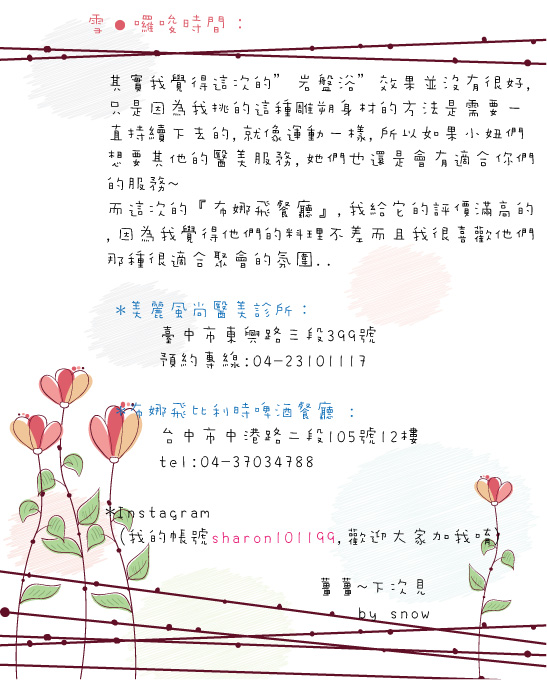 雪●囉唆時間：
其實我覺得這次的”岩盤浴”效果並沒有很好,
只是因為我挑的這種雕朔身材的方法是需要一
直持續下去的,就像運動一樣,所以如果小妞們
想要其他的醫美服務,她們也還是會有適合你們
的服務~
而這次的『布娜飛餐廳』,我給它的評價滿高的
,因為我覺得他們的料理不差而且我很喜歡他們
那種很適合聚會的氛圍..
*美麗風尚醫美診所：
臺中市東興路三段399號
預約專線:04-23101117
*布娜飛比利時啤酒餐廳：
台中市中港路二段105號12樓
tel:04-37034788
*Instagram
(我的帳號sharon101199,歡迎大家加我唷)
薑薑~下次見
by snow